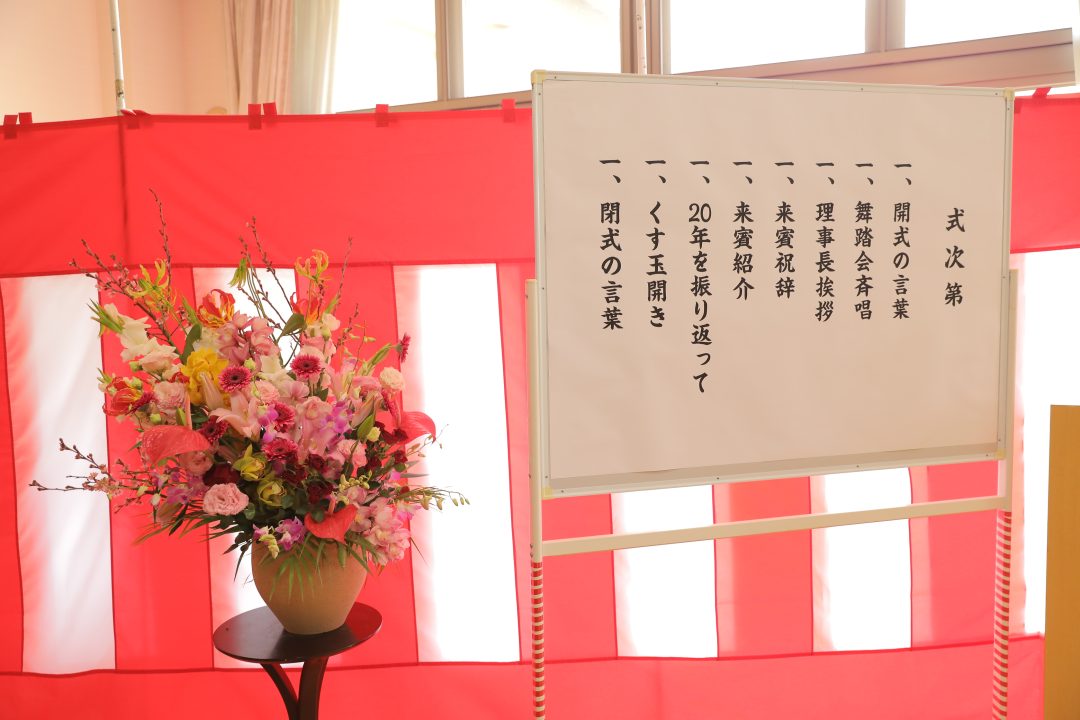 式次第
一、開式の言葉
一、舞踏会斉唱
一、理事長挨拶
一、来賓祝辞
一、来賓紹介
一、20年を振り返って
一、くす玉開き
一、閉式の言葉